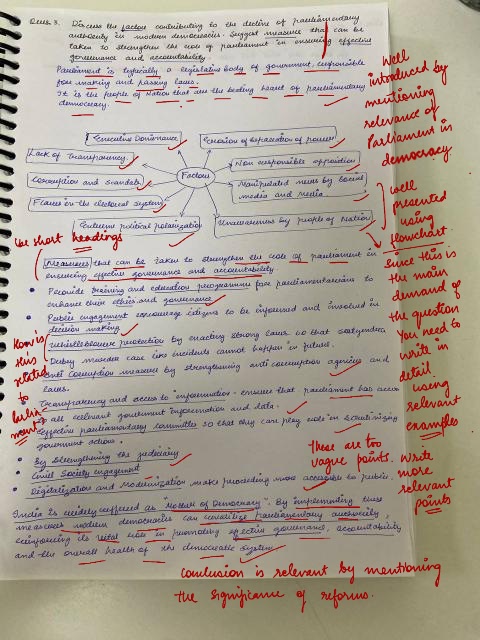 Ques 3. Discuss the factors contributing to the decline of parliamentary
authority in modern democracies. Suggest measure that can be
taken to strengthen the role of parliament in ensuring effective
governance and accountability.
Parliament is typically a legislative body of government, responsible
for making and passing laws.
It is the people of Nation that are the beating heart of parliamentary
democracy.
Well
introduced by
mentioning
relevance of
Parliament in
democracy
Executive Dominance
Erosion of separation of powers
Lack of transparency.
Non responsible opposition
Factors
Corruption and scandals
Manipulated news by Social
media and media
Flaws in the electoral system
Extreme political polarization
Unawareness by people of Nation
Well
presented
using
flowchart.
Use short headings
Measures that can be taken to strengthen the role of parliament in
ensuring effective governance and accountability.
• Provide training and education programme for parliamentarians to
enhance their ethics and governance.
• Public engagement encourage citizens to be informed and involved in
decision making
• Whistleblower protection by enacting strong laws so that
Dubey murder case like incidents cannot happen in future.
• Anti corruption measures by strengthening anti corruption agencies and
laws.
• Transparency and access to information - ensure that parliament has access
to all relevant government information and data.
• Effective parliamentary committees so that they can play role in scrutinizing
government action.
• By Strengthening the judiciary
• Civil Society engagement
• Digitalization and Modernization make proceeding more accessible to public.
How is
this
related
to
parlia-
ment
Since this is
the main
demand of
the question
you need to
write in
detail
using
relevant
examples
These are too
vague points. Write
more
relevant
points
India is widely referred as "Mother of Democracy". By implementing these
measures modern democracies can revitalize parliamentary authority,
reinforcing its vital role in promoting effective governance, accountability
and the overall health of the democratic system.
Conclusion is relevant by mentioning
the significance of reforms.